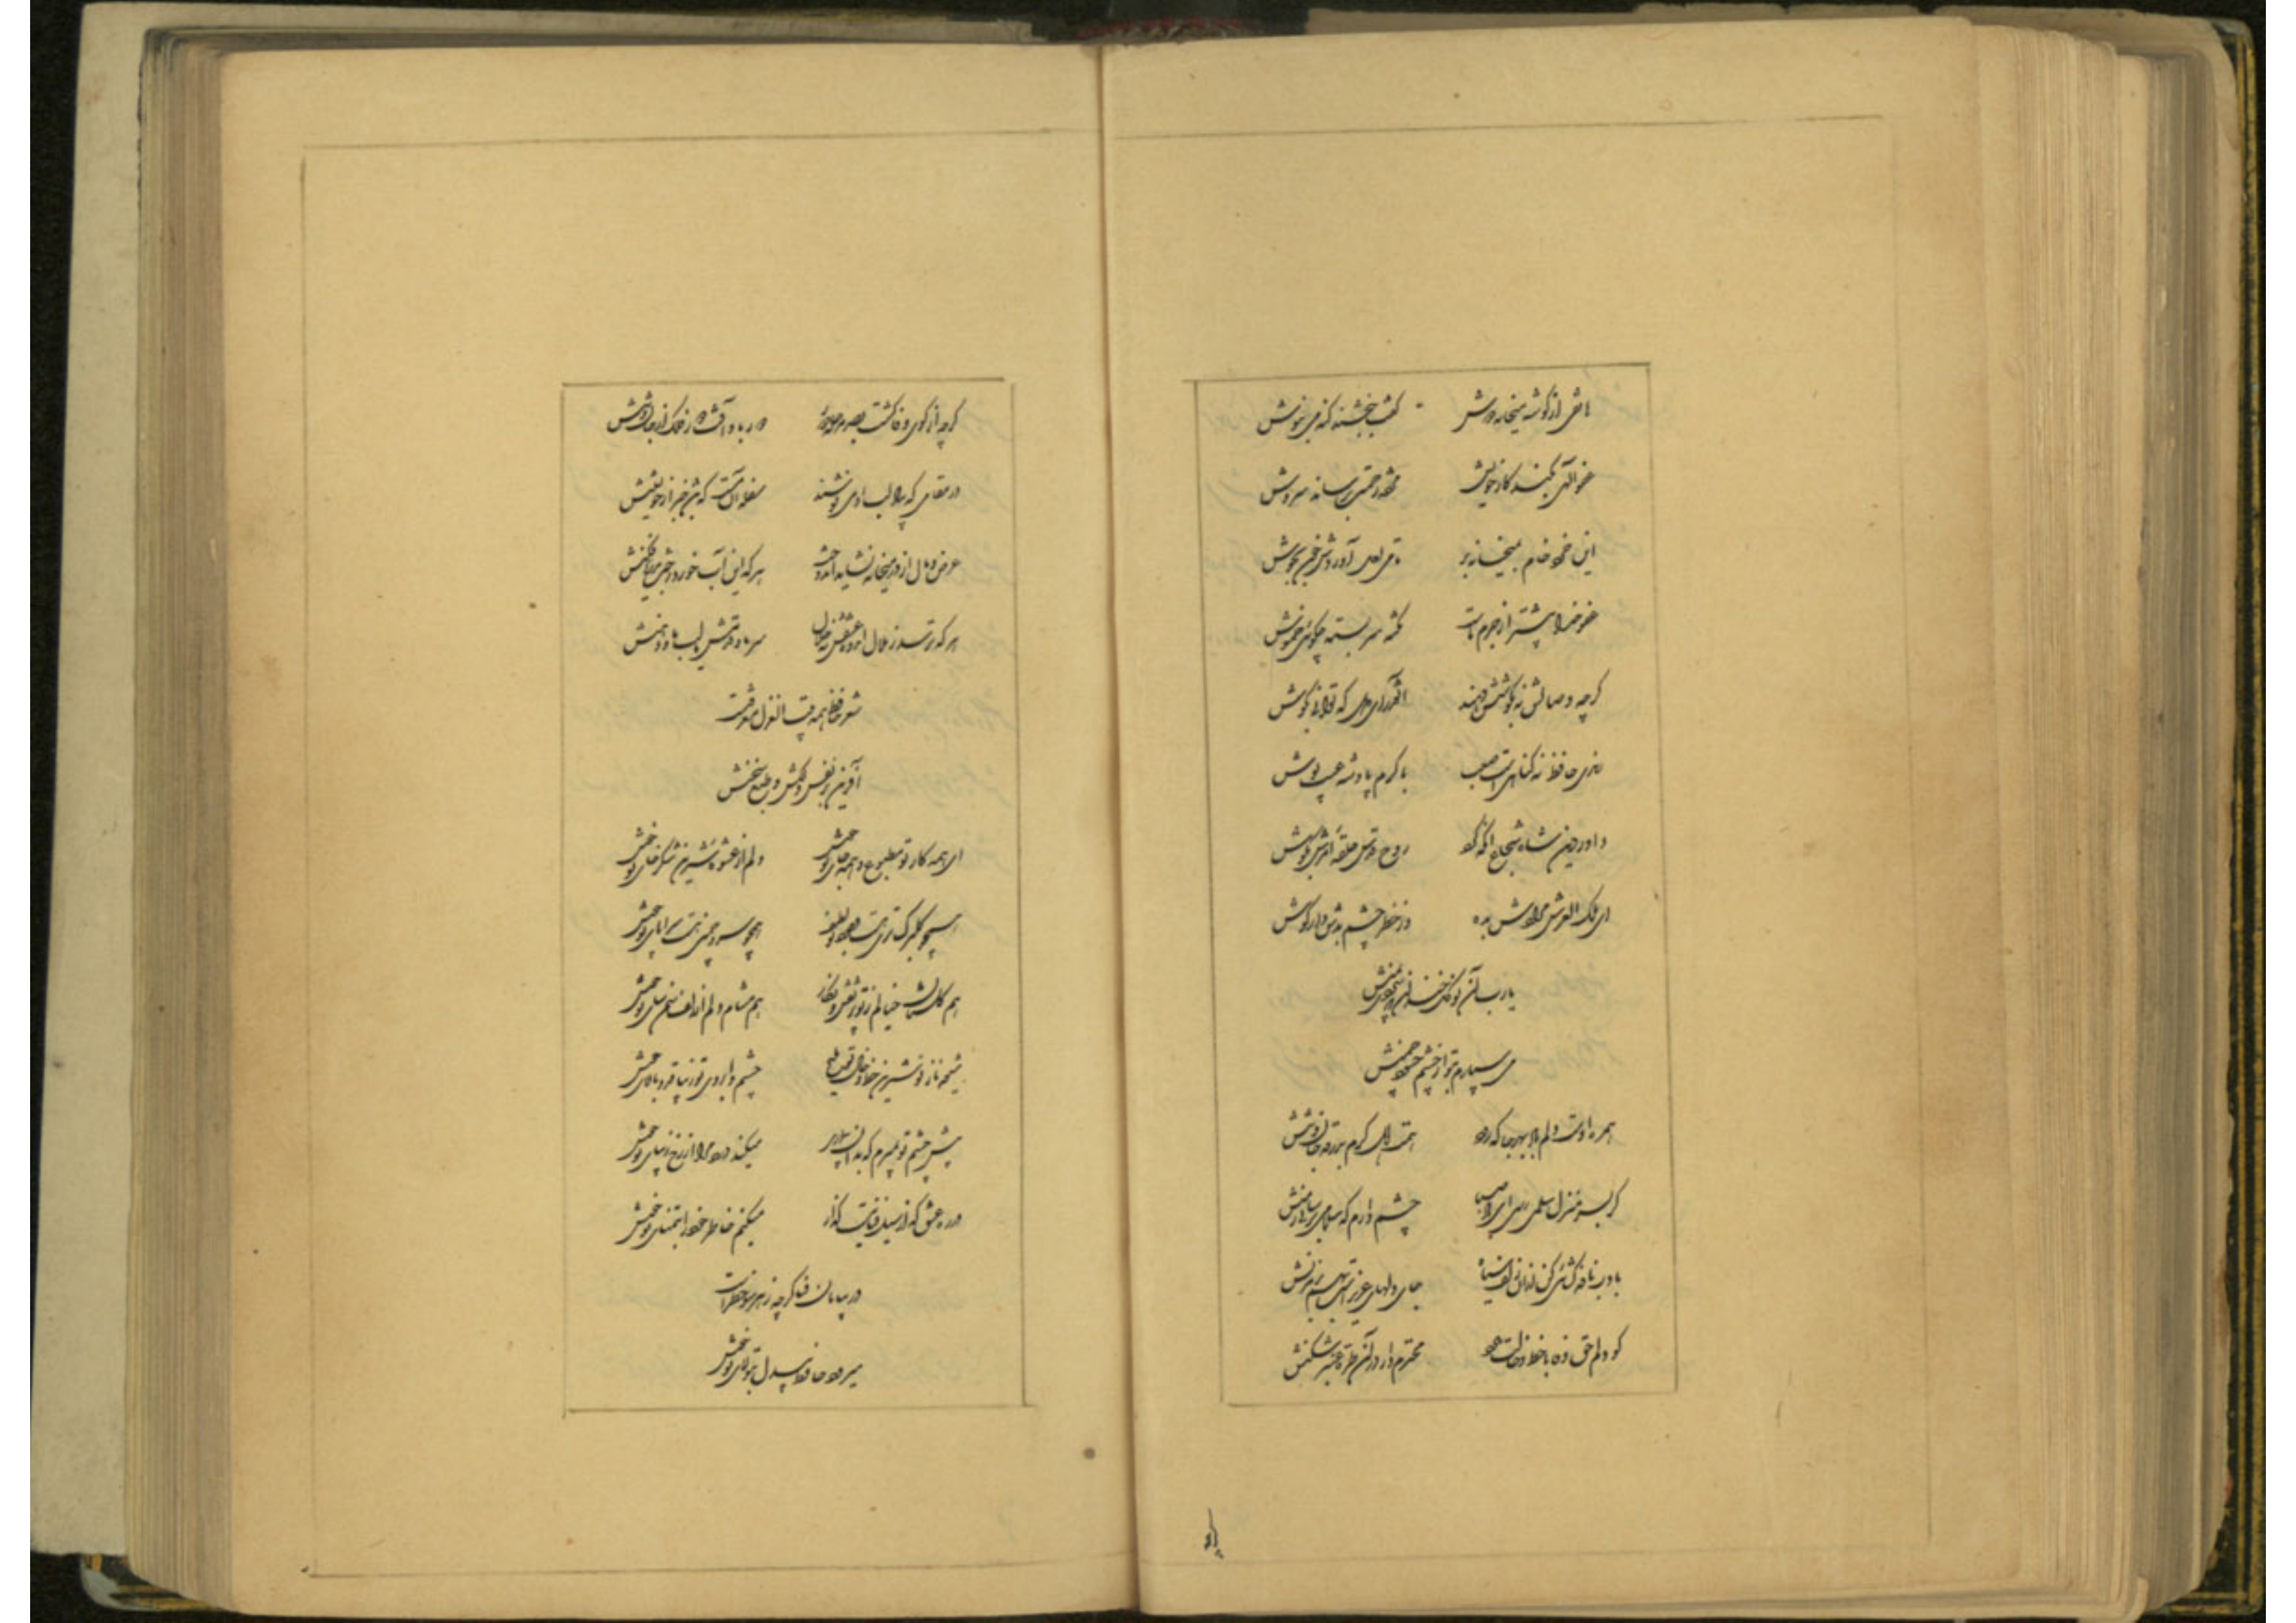 هاتفی از گوشه میخانه دوش گفت ببخشند گنه می بنوش
عفو الهی بکند کار خویش مژده رحمت برساند سروش
این خرد خام بمیخانه بر تا می لعل آوردش خون بجوش
عفو خدا بیشتر از جرم ماست نکته سربسته چه گوئی خموش
گرچه وصالش نه بکوشش دهند آنقدر ای دل که توانی بکوش
رندی حافظ نه گناهیست صعب با کرم پادشه عیب پوش
داور دین شاه شجاع آنکه کرد روح قدس حلقه امرش بگوش
ای ملک العرش مرادش بده وز خطر چشم بدش دار گوش
یارب آن نوگل خندان که سپردی بمنش
می سپارم بتو از چشم حسود چمنش
همره اوست دلم باد بهر جا که رود همت اهل کرم بدرقه جان و تنش
گر بسر منزل سلمی رسی ای باد صبا چشم دارم که سلامی برسانی ز منش
بادب نافه گشائی کن از آن زلف سیاه جای دلهای عزیز است بهم بر مزنش
گو دلم حق وفا با خط و خالت دارد محترم دار در آن طره عنبر شکنش
گرچه از کوی وفا گشت
در مقامی که بیاد لب او می نوشند سفله آن مست که باشد خبر از خویشتنش
عرض و مال از در میخانه نشاید اندوخت هر که این آب خورد رخت بدریا فکنش
هر که ترسد ز ملال انده عشقش نه حلال سر ما و قدمش یا لب ما و دهنش
شعر حافظ همه بیت الغزل معرفت است
آفرین بر نفس دلکش و لطف سخنش
ای همه کار تو مطبوع و همه جای تو خوش دلم از عشوه شیرین شکرخای تو خوش
همچو گلبرگ طری هست وجود تو لطیف همچو سرو چمنی هست سراپای تو خوش
هم گلستان خیالم ز تو پر نقش و نگار هم مشام دلم از زلف سمن سای تو خوش
شیوه ناز تو شیرین خط و خال تو ملیح چشم و ابروی تو زیبا قد و بالای تو خوش
پیش چشم تو بمیرم که بدان بیماری میکند درد مرا از رخ زیبای تو خوش
در ره عشق که از سیل فنا نیست گذار میکنم خاطر خود را بتمنای تو خوش
در بیابان فنا گرچه ز هر سو خطر است
میرود حافظ بیدل بتولای تو خوش